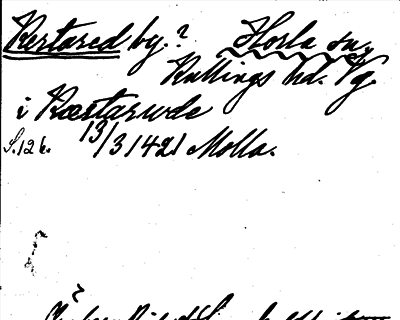 Kertared by.? Horla sn.
Kullings hd. Vg
i Kæstarwde
S.126. 13/3 1421 Molla.